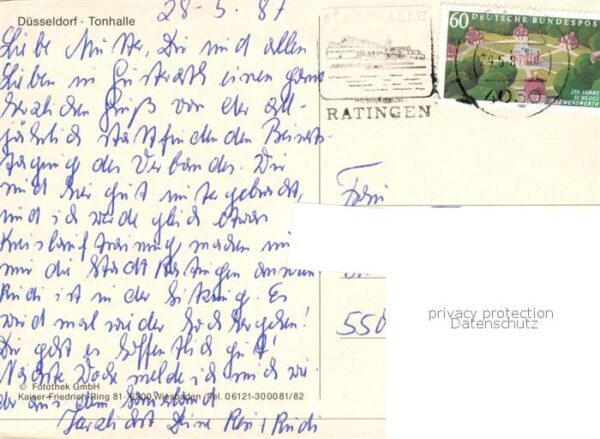 Düsseldorf · Tonhalle
28-5.87
Liebe Mutter, Dir und allen
Lieben in einen ganz
herzlichen Gruß von der all-
jährlich stattfindenden Beirats-
tagung des Verbandes. Wir
sind hier gut untergebracht,
und ich werde gleich etwas
Kreislauftraining machen und
mir die Stadt Ratingen ansehen
Rudi ist in der Sitzung. Es
wird mal wieder hoch hergehen!
Dir geht es hoffentlich gut!
Nächste Woche melde ich mich wie-
der aus dem Sauerland
Herzlichst Deine Rudi
© Fotothek GmbH
Kaiser-Friedrich-Ring 81 · 6200 Wiesbaden Tel. 06121-300081/82
STADTHALLE
RATINGEN
60 DEUTSCHE BUNDESPOST
250 JAHRE
SCHLOSS
CLEMENSWERTH
1987
4030
Frau
550
privacy protection
Datenschutz